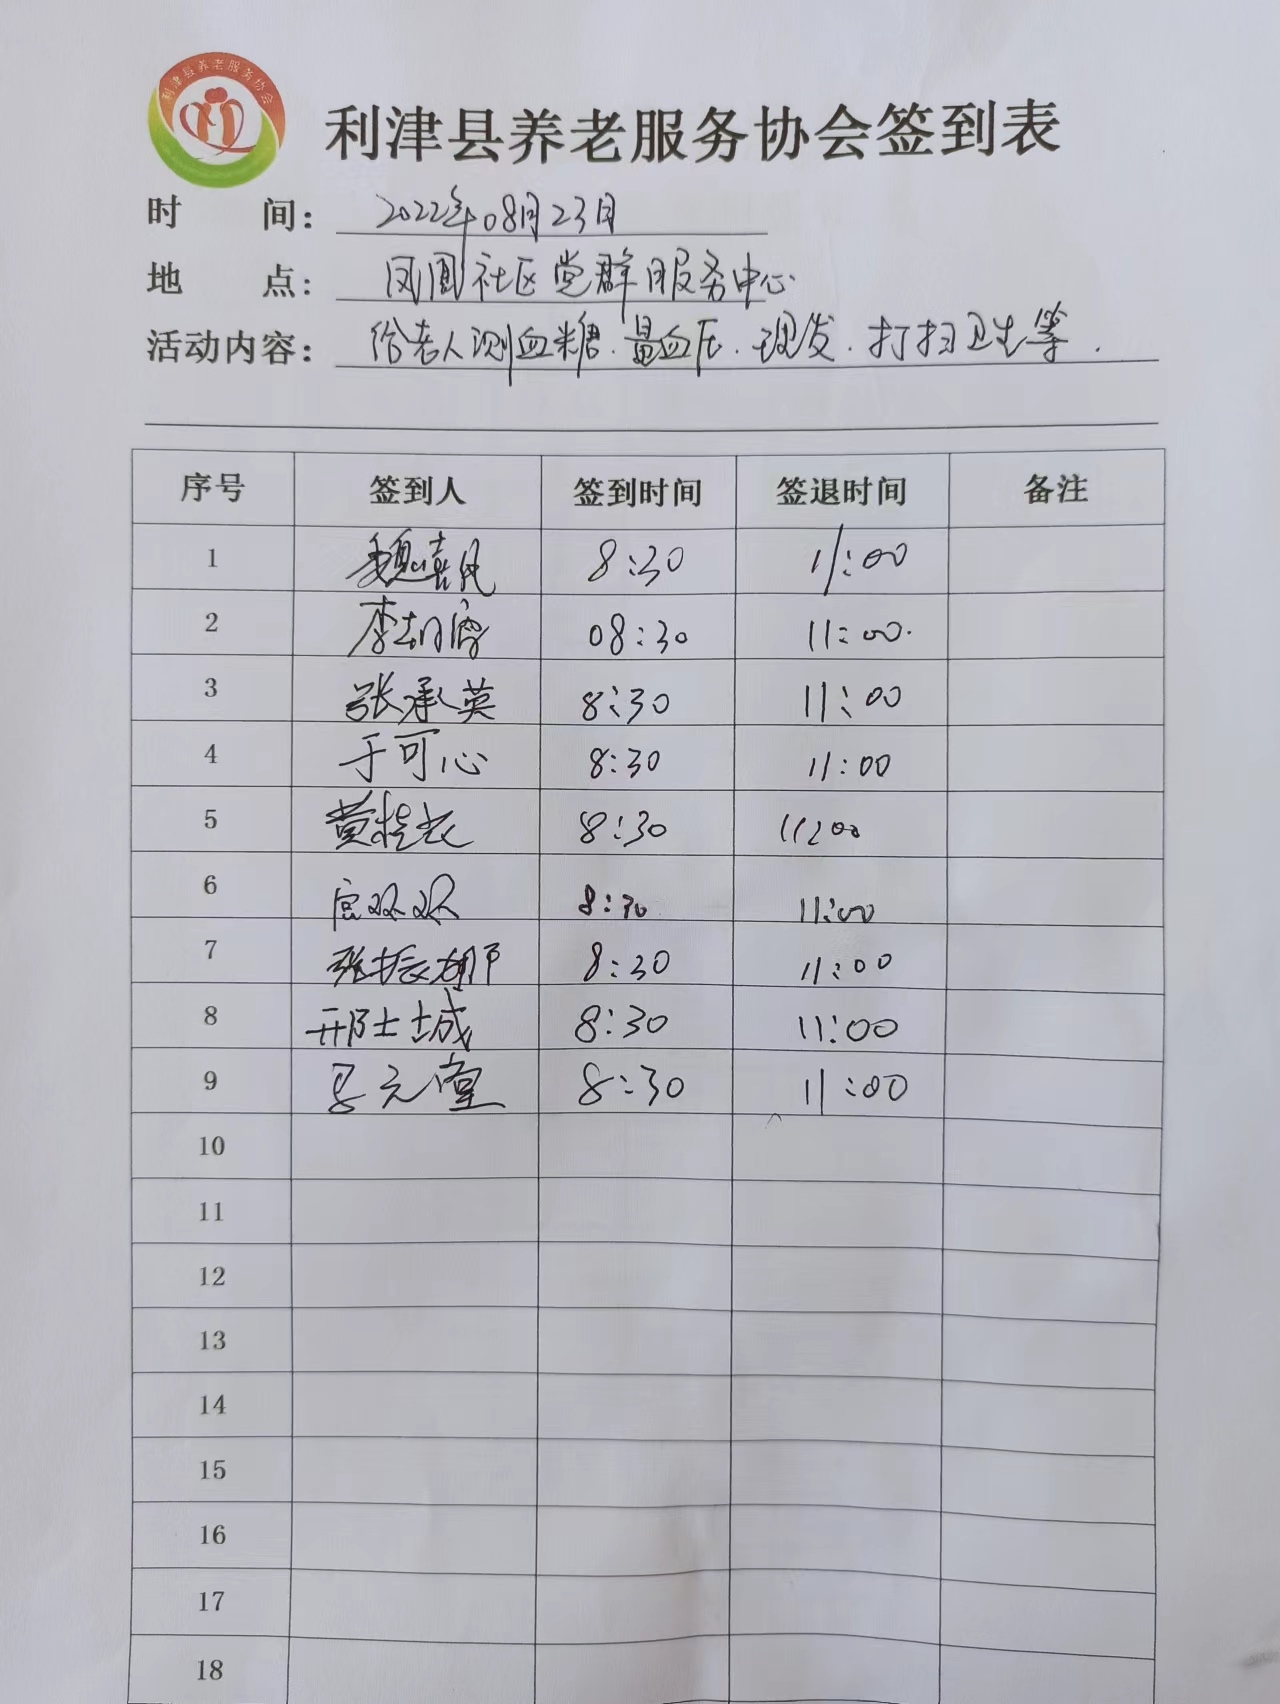 利津县养老服务协会
利津县养老服务协会签到表
时 间： 2022年08月23日
地 点： 凤凰社区党群服务中心
活动内容： 给老人测血糖.量血压.理发.打扫卫生等.
序号 签到人 签到时间 签退时间 备注
1 魏嘉凤 8:30 11:00
2 李 08:30 11:00.
3 张承英 8:30 11:00
4 于可心 8:30 11:00
5 黄 8:30 11:00
6 双双 8:30 11:00
7 张振 8:30 11:00
8 邢士城 8:30 11:00
9 元堂 8:30 11:00
10
11
12
13
14
15
16
17
18